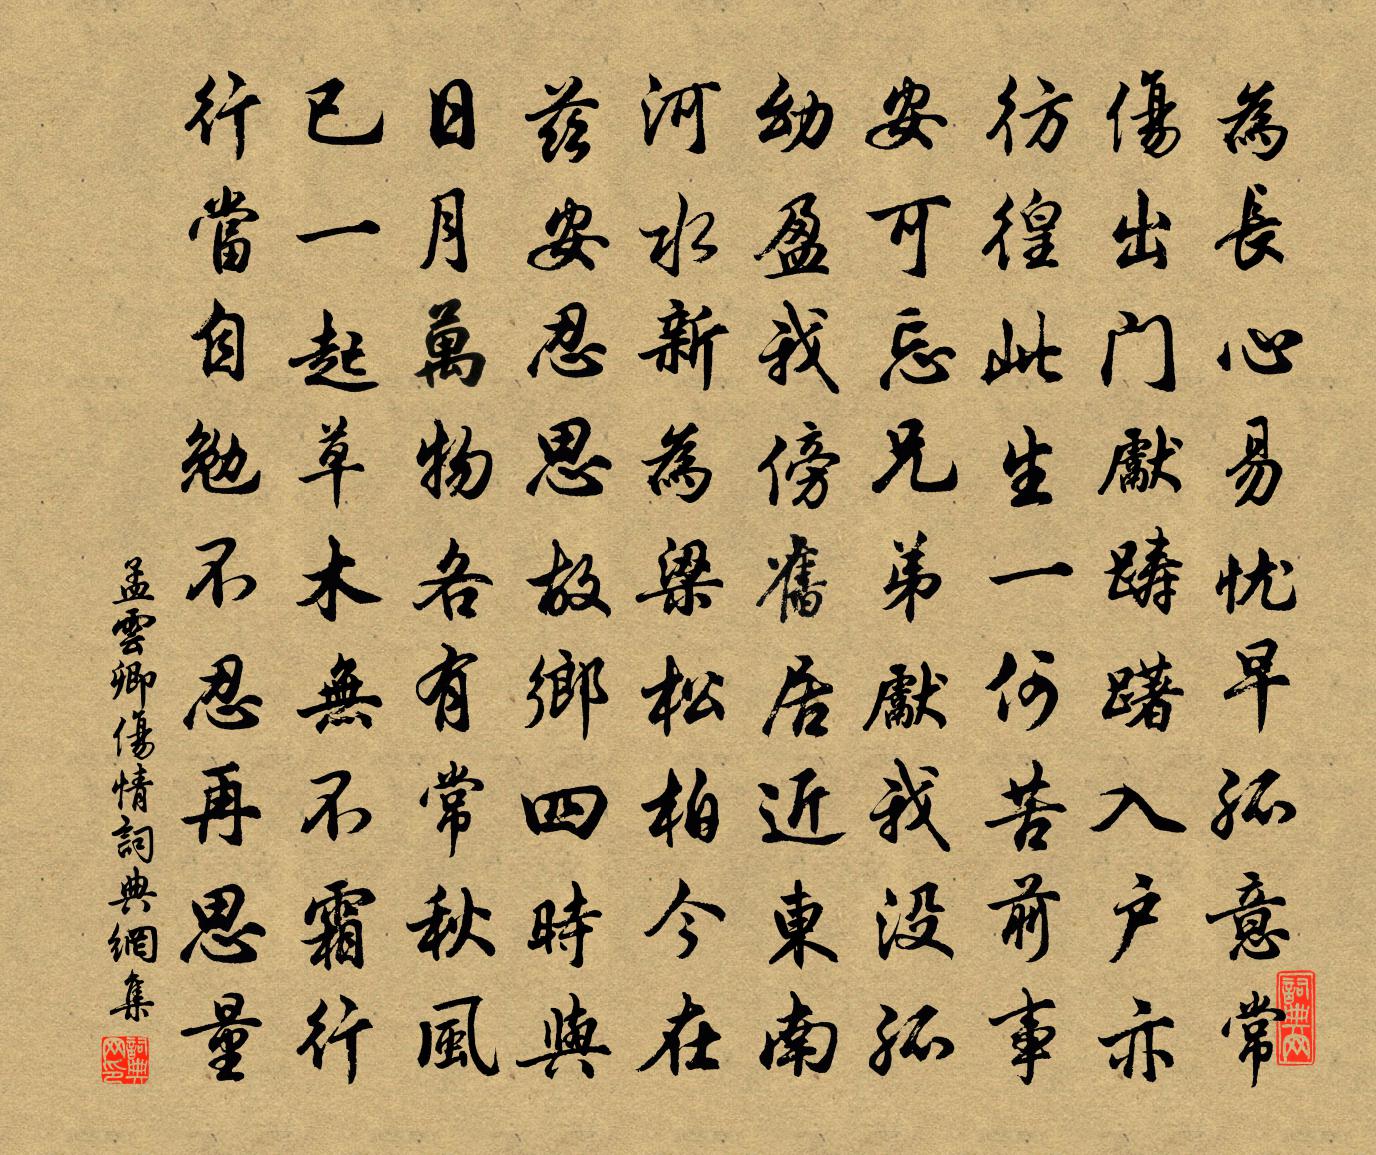 為長心易忧早孤意常
傷出门獻躊躇入户亦
彷徨此生一何苦前事
安可忘兄弟獻我没孤
幼盈我傍舊居近東南
河水新為梁松柏今在
兹安忍思故鄉四時與
日月萬物各有常秋風
已一起草木無不霜行
行當自勉不忍再思量
孟雲卿傷情詞典網集
詞典网
詞典网印